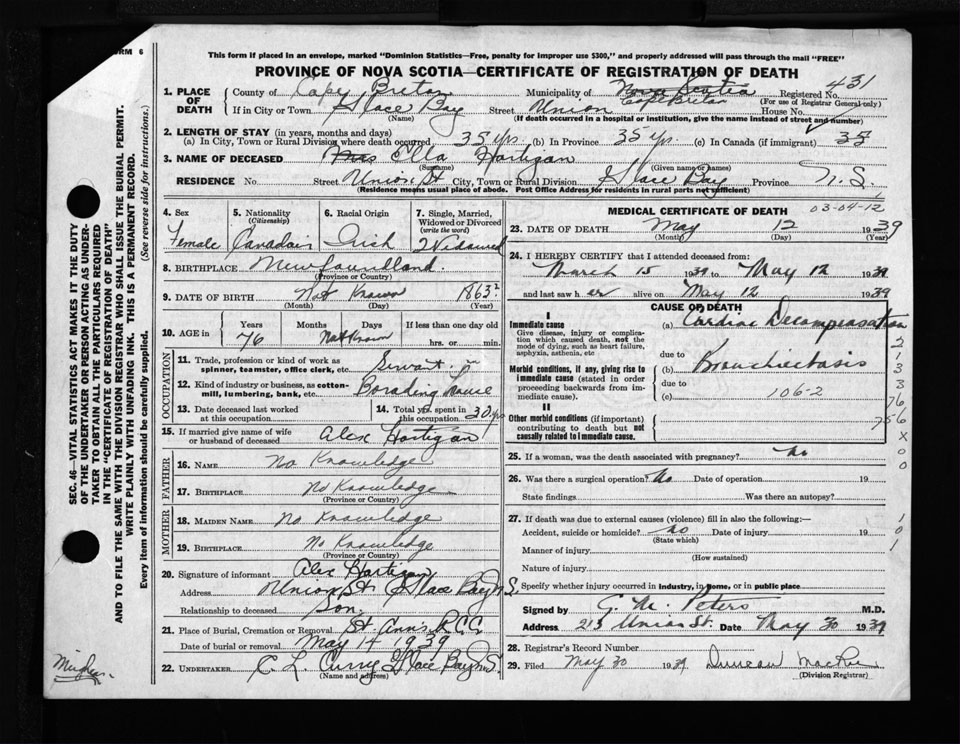 FORM 6
This form if placed in an envelope, marked "Dominion Statistics—Free, penalty for improper use $300," and properly addressed will pass through the mail "FREE"
PROVINCE OF NOVA SCOTIA—CERTIFICATE OF REGISTRATION OF DEATH
431
1. PLACE OF DEATH County of Cape Breton Municipality of Nova Scotia Cape Breton Registered No.
(For use of Registrar General only)
If in City or Town Glace Bay Street Union House No.
(Name) (If death occurred in a hospital or institution, give the name instead of street and number)
2. LENGTH OF STAY (in years, months and days)
(a) In City, Town or Rural Division where death occurred 35 yrs. (b) In Province 35 yrs (c) In Canada (if immigrant) 35
3. NAME OF DECEASED Mrs Ella Hartigan
(Surname) (Given name or names)
RESIDENCE No Street Union St City, Town or Rural Division Glace Bay Province N.S.
(Residence means usual place of abode. Post Office Address for residents in rural parts not sufficient)
03-04-12
4. Sex Female
5. Nationality (Citizenship) Canadain
6. Racial Origin Irish
7. Single, Married, Widowed or Divorced (write the word) Widowed
8. BIRTHPLACE Newfoundland.
(Province or Country)
9. DATE OF BIRTH Not Known 1863?
(Month) (Day) (Year)
10. AGE in Years Months Days If less than one day old
76 Not Known hrs. or min.
OCCUPATION
11. Trade, profession or kind of work as spinner, teamster, office clerk, etc. Servant
12. Kind of industry or business, as cotton-mill, lumbering, bank, etc. Borading house
13. Date deceased last worked at this occupation
14. Total yrs. spent in this occupation 30 yrs
15. If married give name of wife or husband of deceased Alex Hartigan
FATHER
16. NAME No Knowledge
17. BIRTHPLACE No Knowledge
(Province or Country)
MOTHER
18. MAIDEN NAME No Knowledge
19. BIRTHPLACE No Knowledge
(Province or Country)
20. Signature of informant Alex Hartigan
Address Union St Glace Bay N.S.
Relationship to deceased Son.
21. Place of Burial, Cremation or Removal St. Ann's R.C.C
Date of burial or removal May 14 1939
22. UNDERTAKER C. L. Curry Glace Bay N.S.
(Name and address)
MEDICAL CERTIFICATE OF DEATH
23. DATE OF DEATH May 12 1939
(Month) (Day) (Year)
24. I HEREBY CERTIFY that I attended deceased from:
March 15 1939 to May 12 1939
and last saw her alive on May 12 1939
CAUSE OF DEATH
I
Immediate cause
Give disease, injury or complication which caused death, not the mode of dying, such as heart failure, asphyxia, asthenia, etc
(a) Cardiac Decompensation
due to
Morbid conditions, if any, giving rise to immediate cause (stated in order proceeding backwards from immediate cause).
(b) Bronchiectasis
due to
(c) 106-2
II
Other morbid conditions (if important) contributing to death but not causally related to immediate cause.
2
1
3
3
76
756
X
0
0
25. If a woman, was the death associated with pregnancy? no
26. Was there a surgical operation? No Date of operation 19
State findings Was there an autopsy?
27. If death was due to external causes (violence) fill in also the following:—
Accident, suicide or homicide? no Date of injury 19
(State which)
Manner of injury
(How sustained)
Nature of injury
Specify whether injury occurred in industry, in home, or in public place
1
0
1
Signed by G. M. Peters M.D.
Address 213 Union St. Date May 30 1939
28. Registrar's Record Number
29. Filed May 30 1939 Duncan MacRae
(Division Registrar)
SEC. 46—VITAL STATISTICS ACT MAKES IT THE DUTY OF THE UNDERTAKER OR PERSON ACTING AS UNDERTAKER TO OBTAIN ALL THE PARTICULARS REQUIRED IN THE "CERTIFICATE OF REGISTRATION OF DEATH" AND TO FILE THE SAME WITH THE DIVISION REGISTRAR WHO SHALL ISSUE THE BURIAL PERMIT.
WRITE PLAINLY WITH UNFADING INK. THIS IS A PERMANENT RECORD.
Every item of information should be carefully supplied. (See reverse side for instructions.)